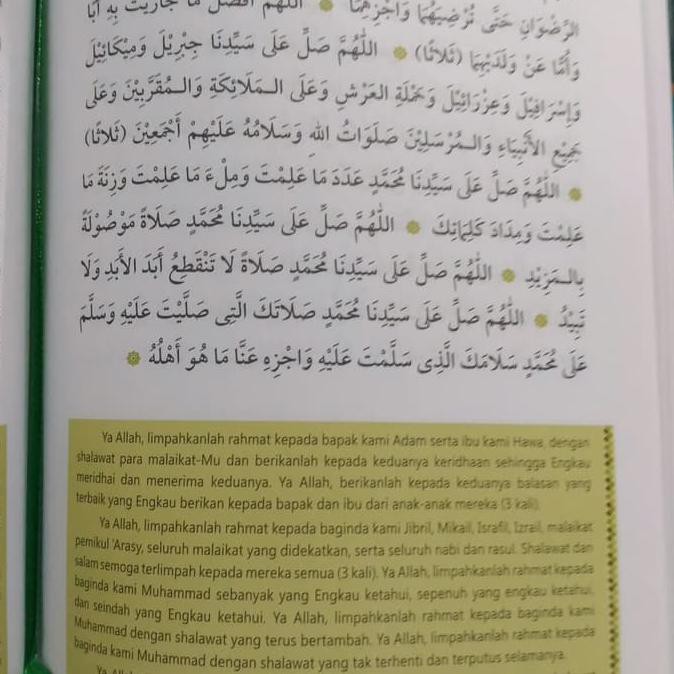 الرِّضْوَانِ حَتَّى تُرْضِيَهُمَا وَاجْزِهِمَا ۞ اللَّهُمَّ أَفْضَلَ مَا جَازَيْتَ بِهِ أَبًا
وَأُمًّا عَنْ وَلَدَيْهِمَا (ثَلَاثًا) ۞ اللَّهُمَّ صَلِّ عَلَى سَيِّدِنَا جِبْرِيْلَ وَمِيْكَائِيْلَ
وَإِسْرَافِيْلَ وَعِزْرَائِيْلَ وَحَمَلَةِ العَرْشِ وَعَلَى الـمَلَائِكَةِ وَالـمُقَرَّبِيْنَ وَعَلَى
جَمِيْعِ الأَنْبِيَاءِ وَالـمُرْسَلِيْنَ صَلَوَاتُ اللهِ وَسَلَامُهُ عَلَيْهِمْ أَجْمَعِيْنَ (ثَلَاثًا)
۞ اللَّهُمَّ صَلِّ عَلَى سَيِّدِنَا مُحَمَّدٍ عَدَدَ مَا عَلِمْتَ وَمِلْءَ مَا عَلِمْتَ وَزِنَةَ مَا
عَلِمْتَ وَمِدَادَ كَلِمَاتِكَ ۞ اللَّهُمَّ صَلِّ عَلَى سَيِّدِنَا مُحَمَّدٍ صَلَاةً مَوْصُوْلَةً
بِالـمَزِيْدِ ۞ اللَّهُمَّ صَلِّ عَلَى سَيِّدِنَا مُحَمَّدٍ صَلَاةً لَا تَنْقَطِعُ أَبَدَ الأَبَدِ وَلَا
تَبِيْدُ ۞ اللَّهُمَّ صَلِّ عَلَى سَيِّدِنَا مُحَمَّدٍ صَلَاتَكَ الَّتِى صَلَّيْتَ عَلَيْهِ وَسَلِّمْ
عَلَى مُحَمَّدٍ سَلَامَكَ الَّذِى سَلَّمْتَ عَلَيْهِ وَاجْزِهِ عَنَّا مَا هُوَ أَهْلُهُ ۞
Ya Allah, limpahkanlah rahmat kepada bapak kami Adam serta ibu kami Hawa, dengan
shalawat para malaikat-Mu dan berikanlah kepada keduanya keridhaan sehingga Engkau
meridhai dan menerima keduanya. Ya Allah, berikanlah kepada keduanya balasan yang
terbaik yang Engkau berikan kepada bapak dan ibu dari anak-anak mereka (3 kali).
Ya Allah, limpahkanlah rahmat kepada baginda kami Jibril, Mikail, Israfil, Izrail, malaikat
pemikul 'Arasy, seluruh malaikat yang didekatkan, serta seluruh nabi dan rasul. Shalawat dan
salam semoga terlimpah kepada mereka semua (3 kali). Ya Allah, limpahkanlah rahmat kepada
baginda kami Muhammad sebanyak yang Engkau ketahui, sepenuh yang engkau ketahui,
dan seindah yang Engkau ketahui. Ya Allah, limpahkanlah rahmat kepada baginda kami
Muhammad dengan shalawat yang terus bertambah. Ya Allah, limpahkanlah rahmat kepada
baginda kami Muhammad dengan shalawat yang tak terhenti dan terputus selamanya.